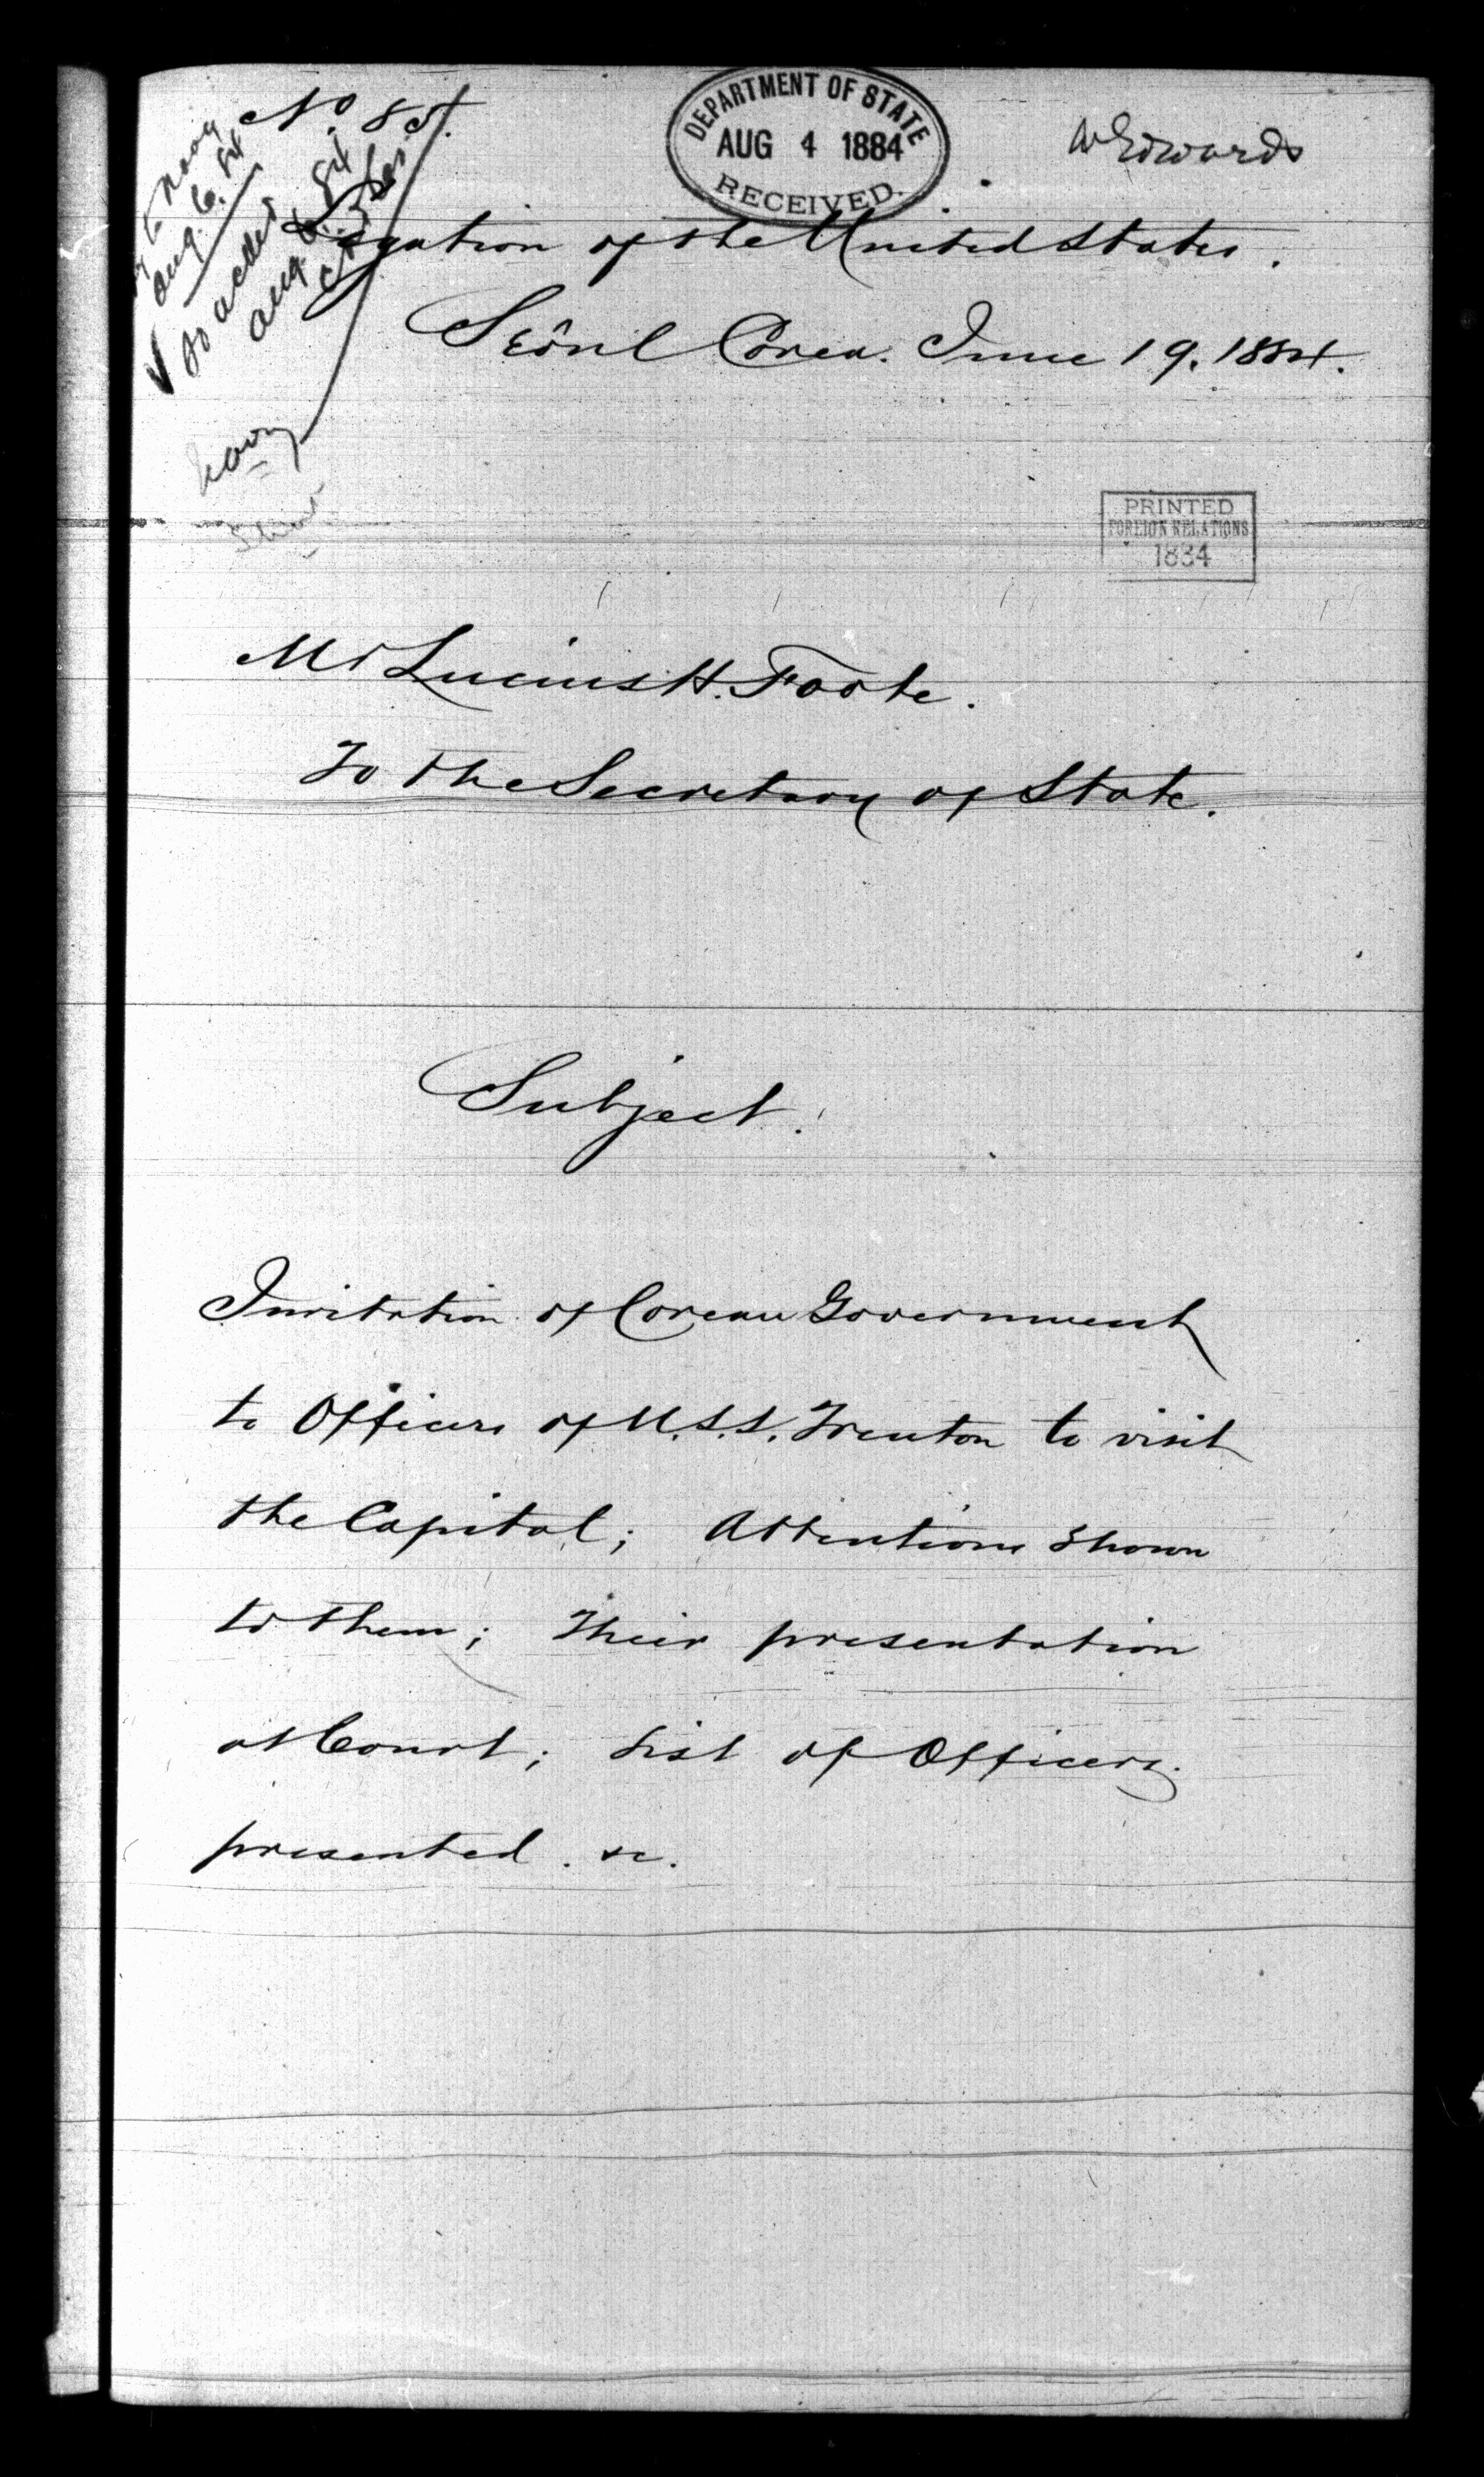 No. 85.
DEPARTMENT OF STATE
AUG 4 1884
RECEIVED.
WEdwards
to Navy
Aug. 6. 84
so acded
Aug. 6. 84
Legation of the United States.
Sëoul Corea. June 19. 1884.
Navy
PRINTED
FOREIGN RELATIONS
1884
Mr Lucius H. Foote.
To the Secretary of State.
Subject.
Invitation of Corean Government
to Officers of U.S.S. Trenton to visit
the Capital; Attentions shown
to them; Their presentation
at Court; List of Officers
presented. &c.